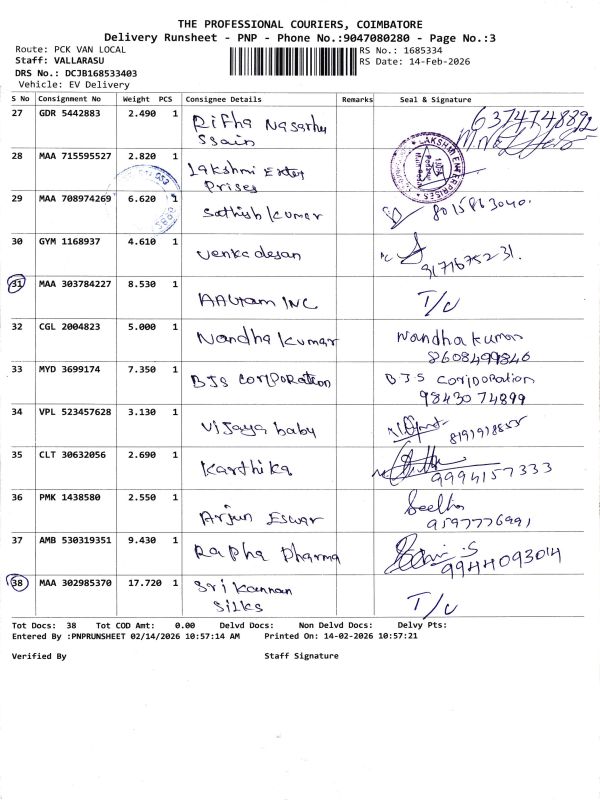 THE PROFESSIONAL COURIERS, COIMBATORE
Delivery Runsheet - PNP - Phone No.:9047080280 - Page No.:3
Route: PCK VAN LOCAL
RS No.: 1685334
Staff: VALLARASU
RS Date: 14-Feb-2026
DRS No.: DCJB168533403
Vehicle: EV Delivery
S No Consignment No Weight PCS Consignee Details Remarks Seal & Signature
27 GDR 5442883 2.490 1 Rifha Nasarhu
ssain
6374748892
28 MAA 715595527 2.820 1 Lakshmi Enter
Prises
LAKSHMI ENTERPRISES
29 MAA 708974269 6.620 1 Sathish kumar 8015863040.
30 GYM 1168937 4.610 1 venkadesan
31 MAA 303784227 8.530 1 AAUram INC T/C
32 CGL 2004823 5.000 1 Nandha kumar Nandhakumar
8608499846
33 MYD 3699174 7.350 1 BJS CORPORATION BJS corporation
9843074899
34 VPL 523457628 3.130 1 vijaya baby
35 CLT 30632056 2.690 1 Karthika
9994157333
36 PMK 1438580 2.550 1 Arjun Eswar
9597776991
37 AMB 530319351 9.430 1 Rapha pharma
9944093014
38 MAA 302985370 17.720 1 Sri kannan
Silks
T/C
Tot Docs: 38 Tot COD Amt: 0.00 Delvd Docs: Non Delvd Docs: Delvy Pts:
Entered By :PNPRUNSHEET 02/14/2026 10:57:14 AM Printed On: 14-02-2026 10:57:21
Verified By Staff Signature